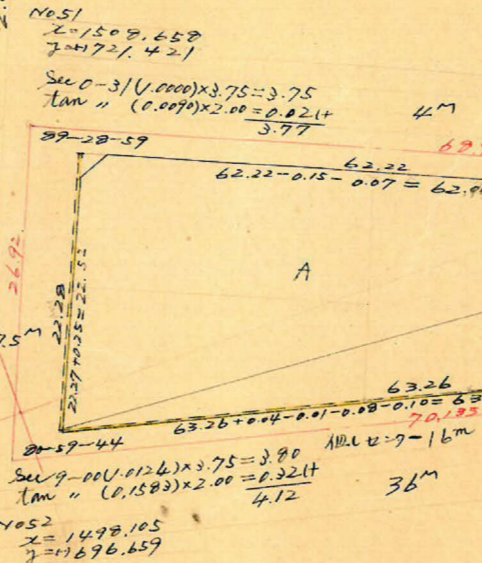 No51
x=1508.658
y=+1721.421
Sec 0-31 (1.0000)×3.75=3.75
tan 〃 (0.0090)×2.00=0.02(+
3.77
4M
89-28-59
62.22
62.22-0.15-0.07=62.
26.92
22.28
22.27+0.25=22.52
A
7.5M
63.26
63.26+0.04-0.01-0.08-0.10=63
70.135
80-59-44
16m
Sec 9-00(1.0124)×3.75=3.80
tan 〃 (0.1583)×2.00=0.32(+
4.12
36M
No52
x=1498.105
y=+1696.659